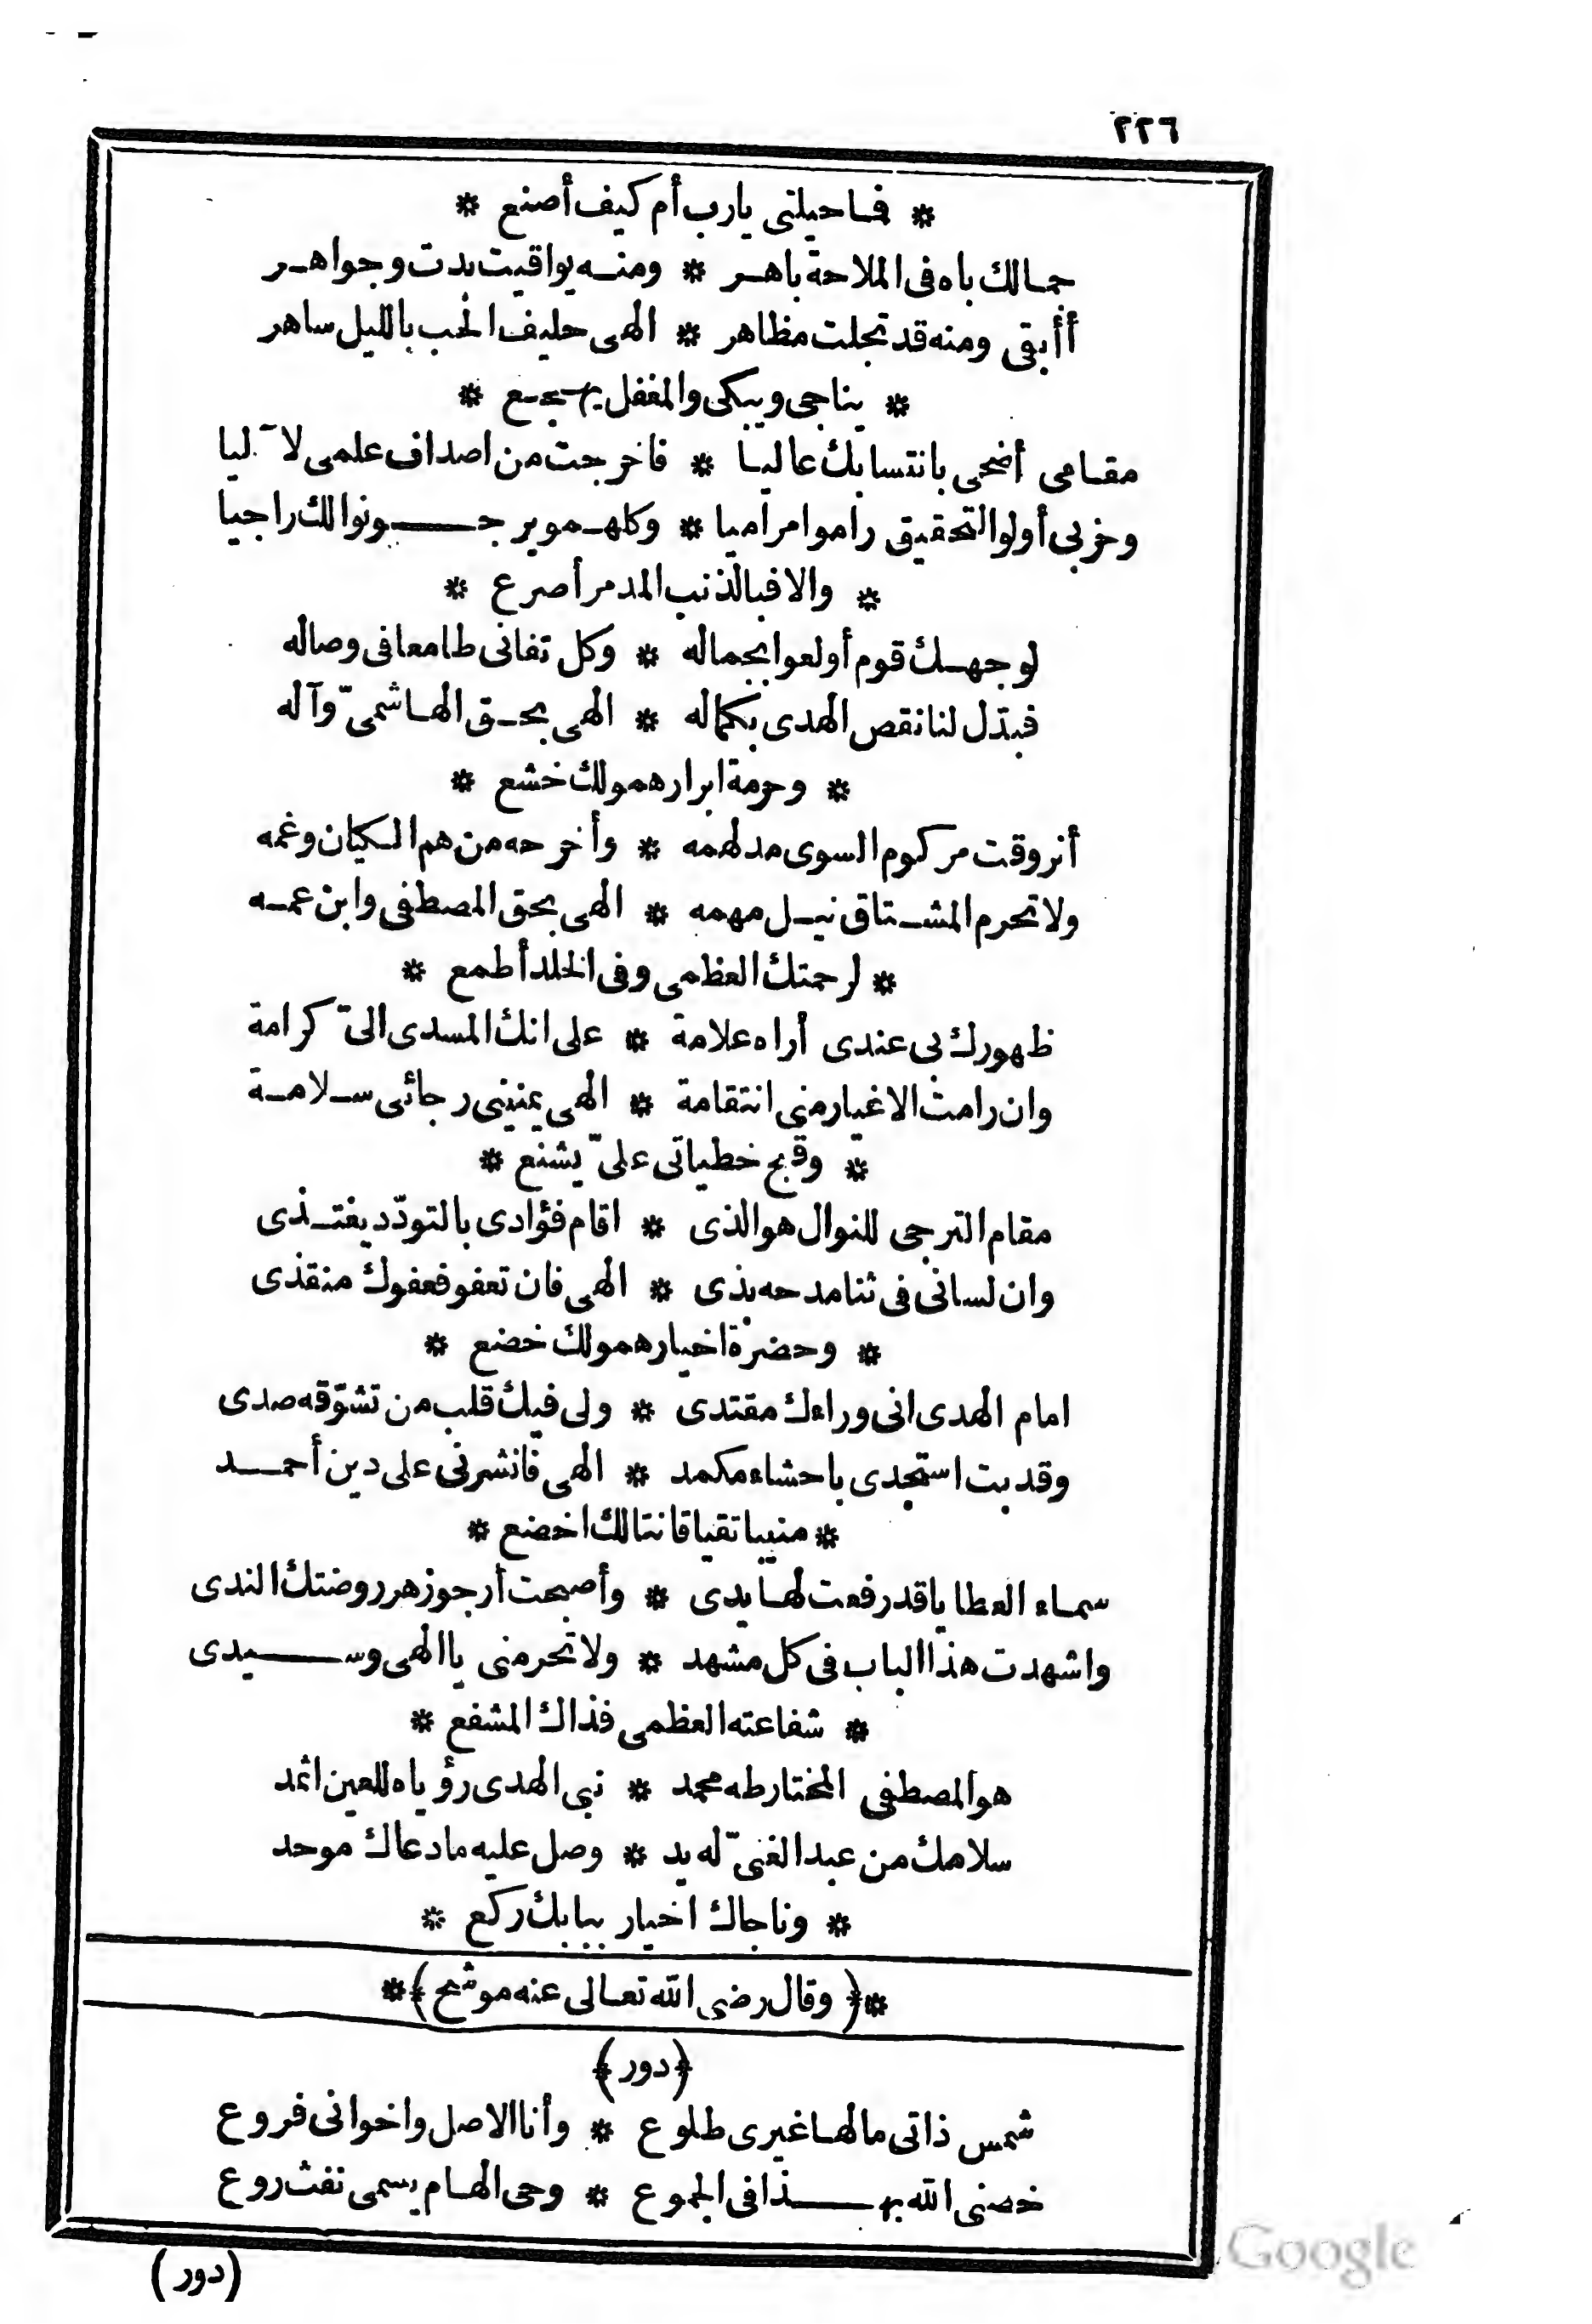 ٢٢٦
* فما حيلتي يارب أم كيف أصنع *
جمالك باه في الملاحة باهر * ومنه يواقيت بدت وجواهر
أأبقى ومنه قد تجلت مظاهر * الهى حليف الحب بالليل ساهر
* يناجى ويبكى والمغفل يهجع *
مقامى أضحى بانتسابك عاليا * فاخرجت من اصداف علمى لآليا
وخربى أولوا التحقيق راموا مراميا * وكلهمو يرجو نوالك راجيا
* والا فبالذنب المدمر أصرع *
لوجهك قوم أولعوا بجماله * وكل تفانى طامعا فى وصاله
فبتدل لنا نقص الهدى بكماله * الهى بحق الهاشمىّ وآله
* وحرمة ابرار همو لك خشع *
أنر وقت مركوم السوى مدلهمه * وأخرجه من هم الكيان وغمه
ولا تحرم المشتاق نيل مهمه * الهى بحق المصطفى وابن عمه
* لرحمتك العظمى وفى الخلد أطمع *
ظهورك بى عندى أراه علامة * على انك المسدى الىّ كرامة
وان رامت الاغيار منى انتقامة * الهى يمنينى رجائى سلامة
* وقبح خطياتى علىّ يشنع *
مقام الترجى للنوال هو الذى * اقام فؤادى بالتودّد يغتذى
وان لسانى فى ثنا مدحه بذى * الهى فان تعفو فعفوك منقذى
* وحضرة اخيار همو لك خضع *
امام الهدى انى وراءك مقتدى * ولى فيك قلب من تشوّقه صدى
وقد بت استجدى باحشاء مكمد * الهى فانشرنى على دين أحمد
* منيبا تقيا قانتا لك اخضع *
سماء العطايا قد رفعت لها يدى * وأصبحت أرجو زهر روضتك الندى
واشهدت هذا الباب فى كل مشهد * ولا تحرمنى يا الهى وسيدى
* شفاعته العظمى فذاك المشفع *
هو المصطفى المختار طه محمد * نبى الهدى رؤياه للعين اثمد
سلامك من عبد الغنىّ له يد * وصل عليه ما دعاك موحد
* وناجاك اخيار ببابك ركع *
*﴿ وقال رضى الله تعالى عنه موشح ﴾*
﴿دور﴾
شمس ذاتى ما لها غيرى طلوع * وأنا الاصل واخوانى فروع
خصنى الله بهذا فى الجموع * وحى الهام يسمى نفث روع
(دور)
Google